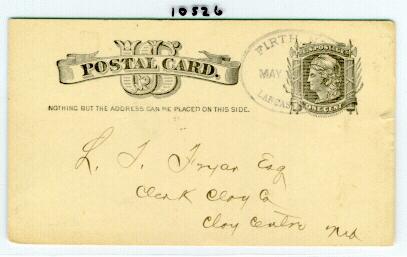 10526
US
POSTAL CARD.
NOTHING BUT THE ADDRESS CAN BE PLACED ON THIS SIDE.
FIRTH
MAY
LANCAS
U.S. POSTAGE
ONE CENT
L. T. Fryar Esq
Clerk Clay Co
Clay Centre Neb